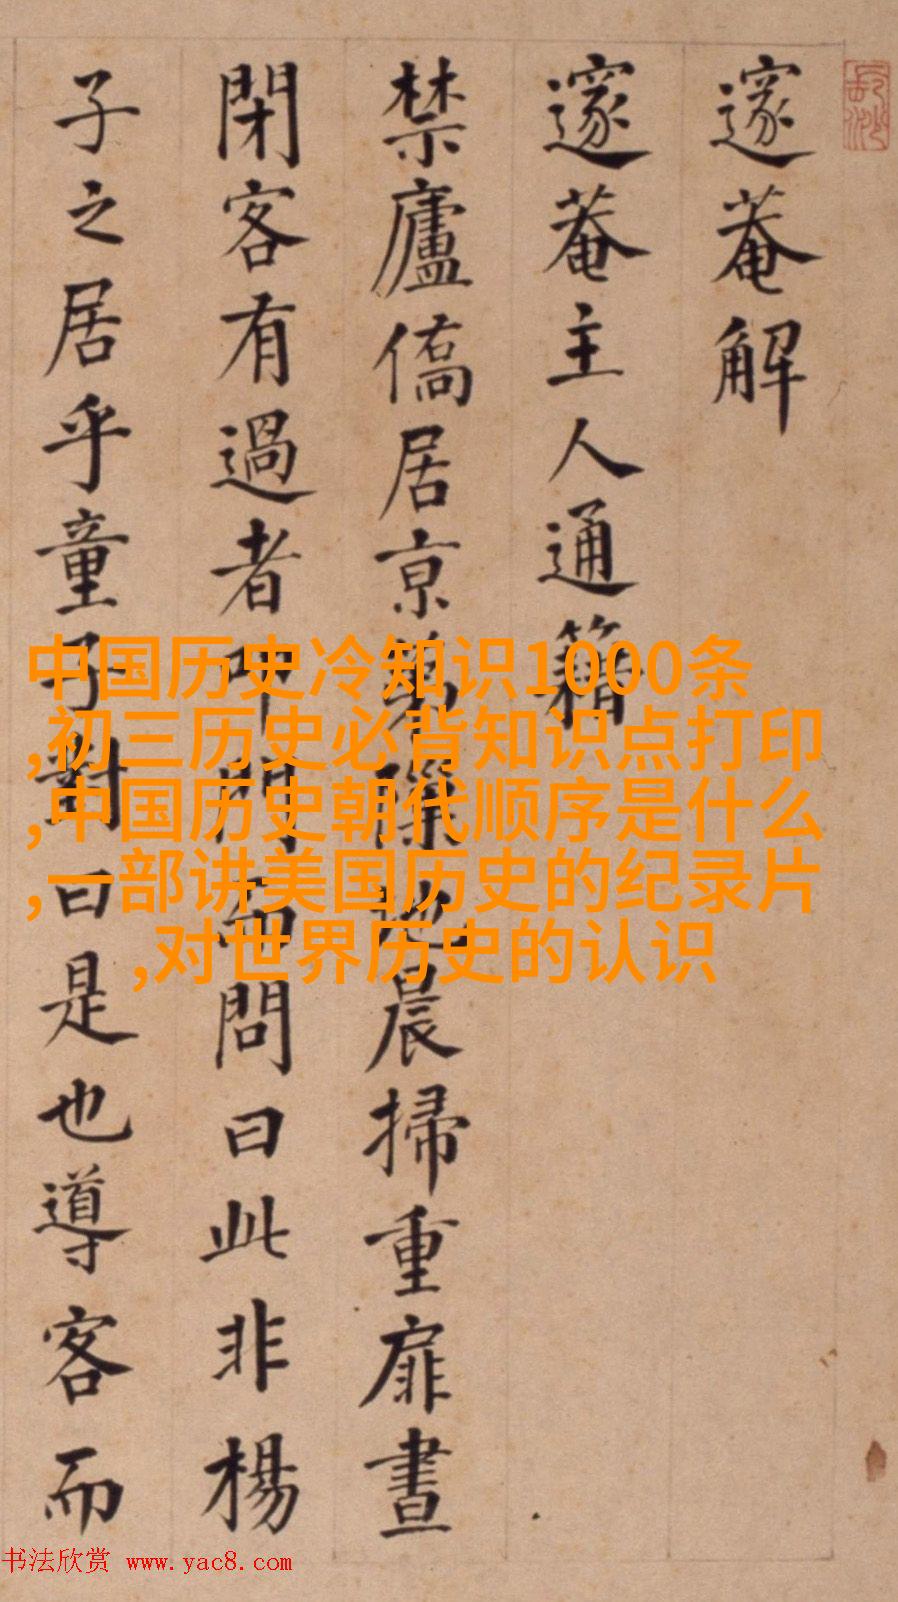 邃菴解
邃菴主人通籍
禁廬僑居京隙地晨掃重扉晝
閉客有過者叩門而問曰此非楊
子之居乎童子對曰是也導客而
中国历史冷知识1000条
,初三历史必背知识点打印
,中国历史朝代顺序是什么
,一部讲美国历史的纪录片
,对世界历史的认识
书法欣赏 www.yac8.com